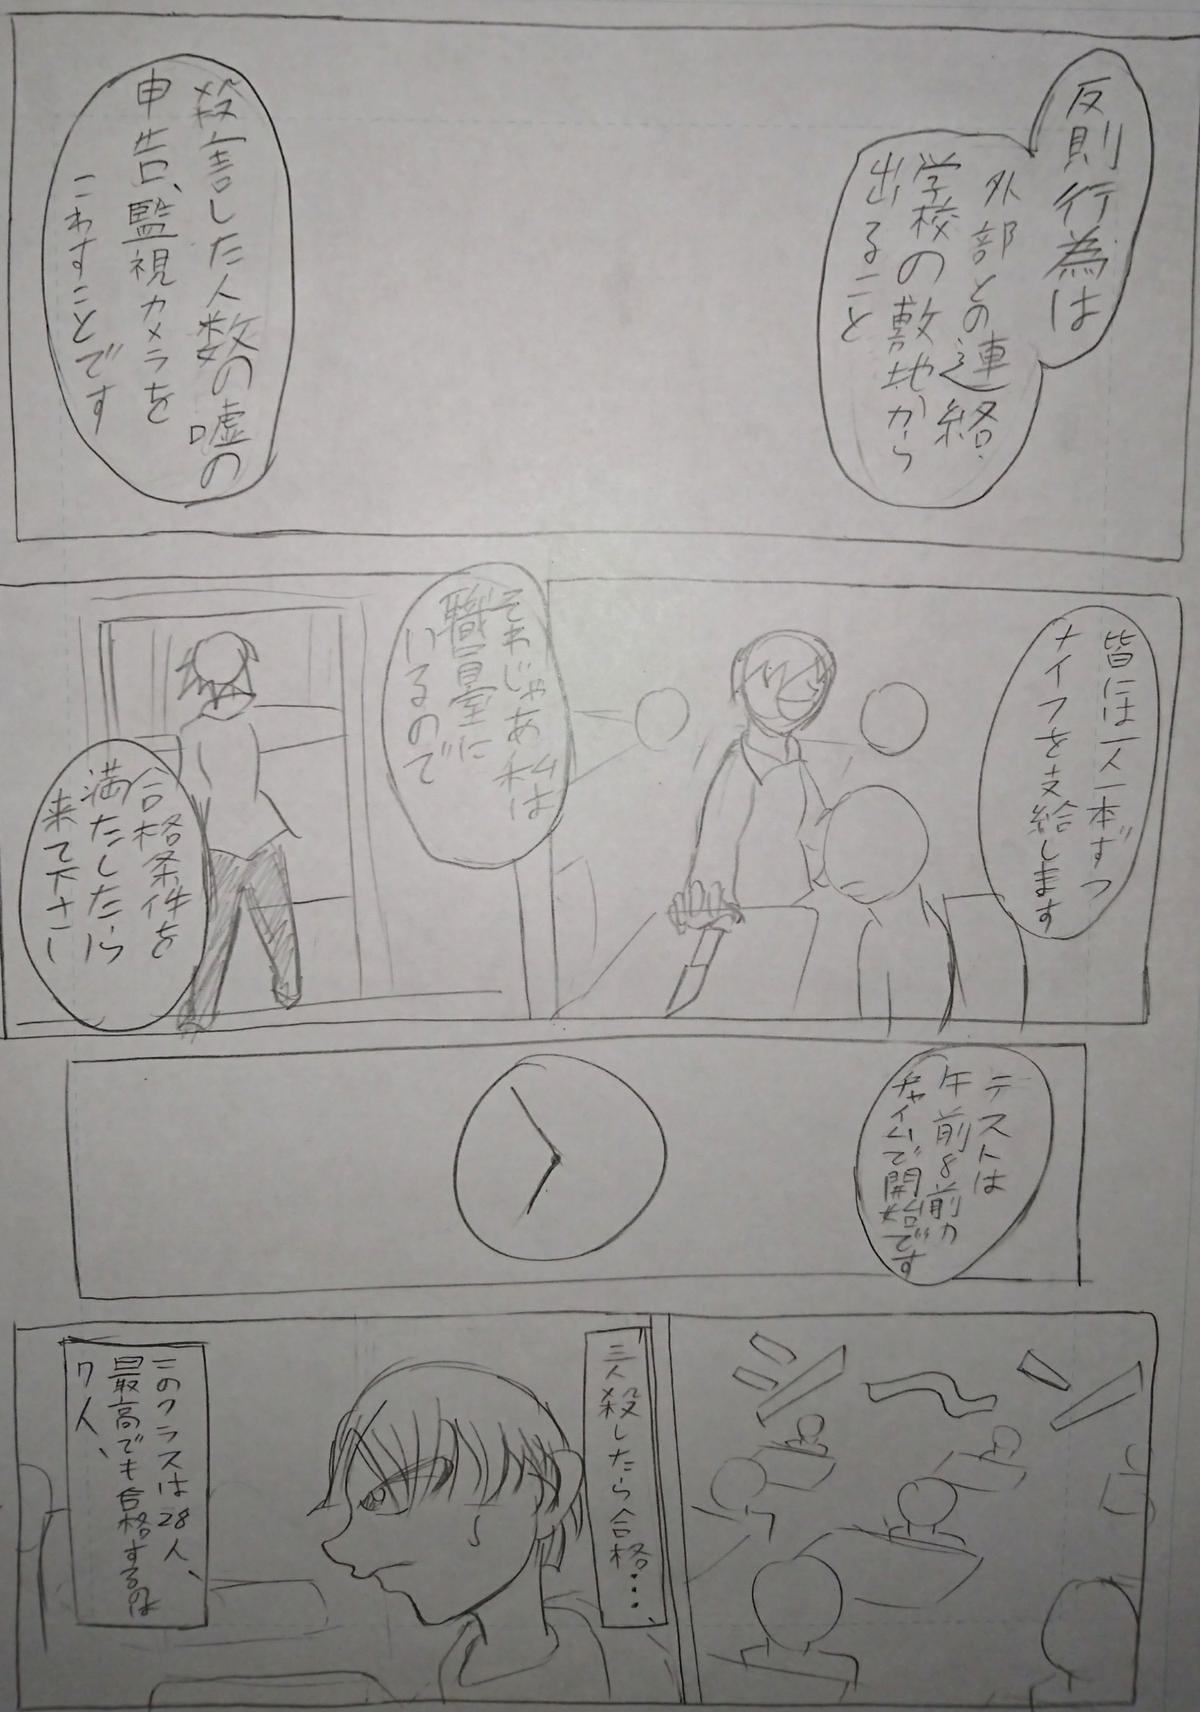 反則行為は
外部との連絡
学校の敷地から
出ること
殺害した人数の嘘の
申告、監視カメラを
こわすことです
皆には一人一本ずつ
ナイフを支給します
それじゃあ私は
職員室に
いるので
合格条件を
満たしたら
来て下さい
テストは
午前8前の
チャイムで開始です
三人殺したら合格・・・
このクラスは28人、
最高でも合格するのは
7人、